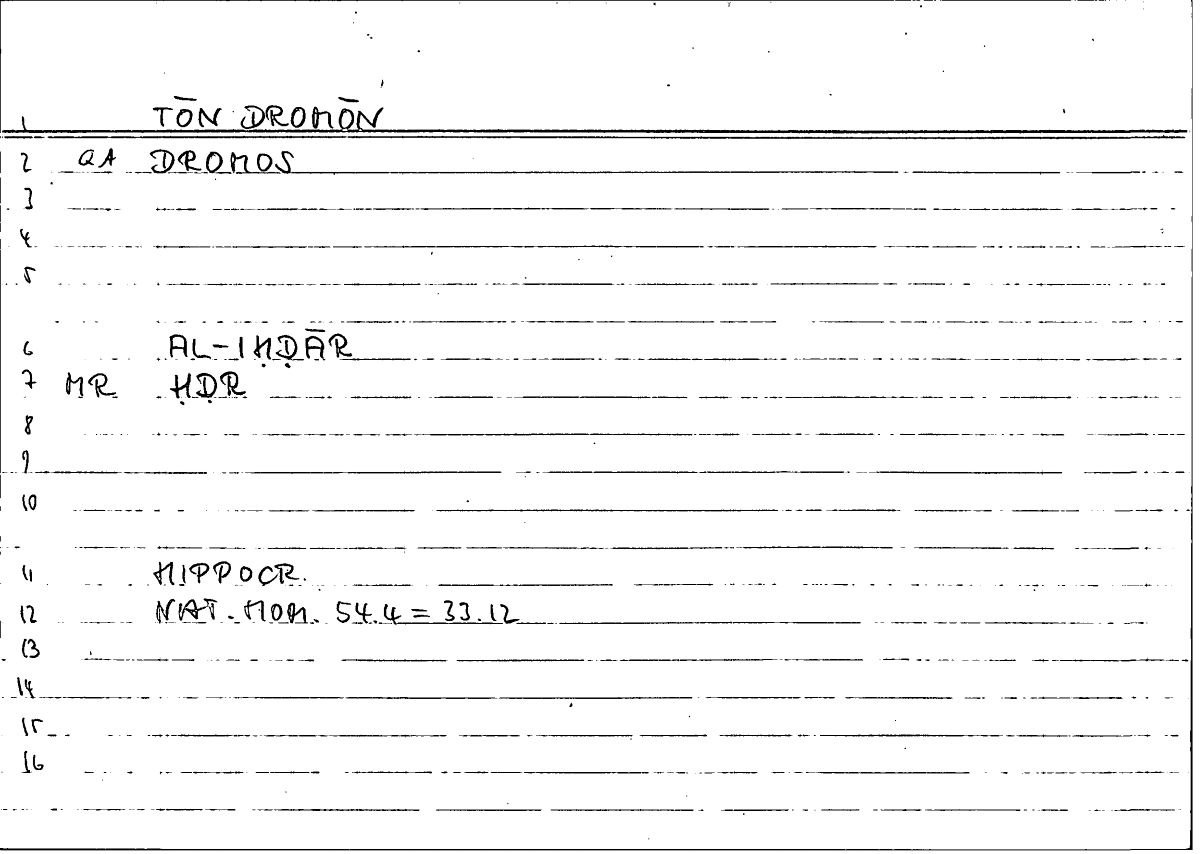 1 TŌN DROMŌN
2 QA DROMOS
3
4
5
6 AL-IḤḌĀR
7 MR ḤḌR
8
9
10
11 HIPPOCR.
12 NAT. HOM. 54.4 = 33.12
13
14
15
16